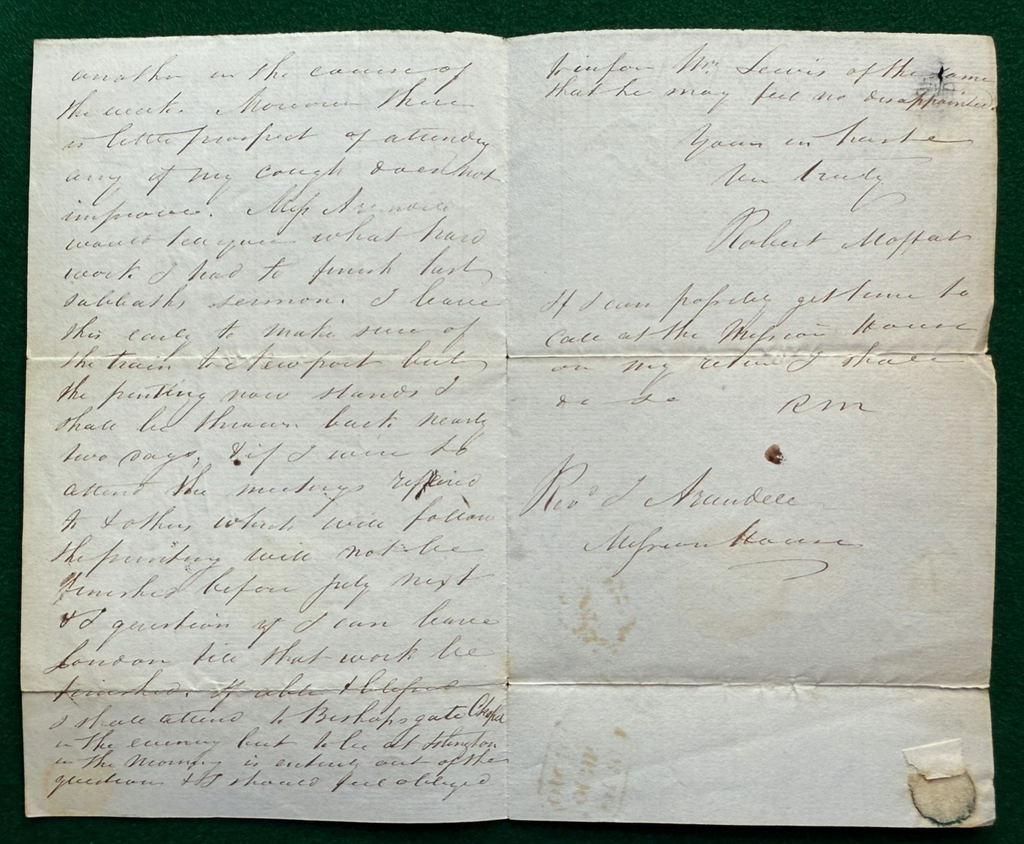 another in the course of
the week. Moreover there
is little prospect of attending
any if my cough does not
improve. Miss Arundel
would tell you what hard
work I had to finish last
sabbaths sermon. I leave
this early to make sure of
the train to Newport but
the printing now stands I
shall be thrown back nearly
two days, & if I were to
attend the meetings referred
to & others which will follow
the printing will not be
finished before July next
& I question if I can leave
London till that work be
finished. If able & blessed
I shall attend to Bishopsgate Chapel
in the evening but to be at Islington
in the morning is entirely out of the
question & I should feel obliged
to inform Mr. Lewis of the same
that he may feel no disappointment
Yours in haste
Ver truly
Robert Moffat
If I can possibly get time to
call at the Mission House
on my return I shall
do so RM
Revd J Arundell
Mission House